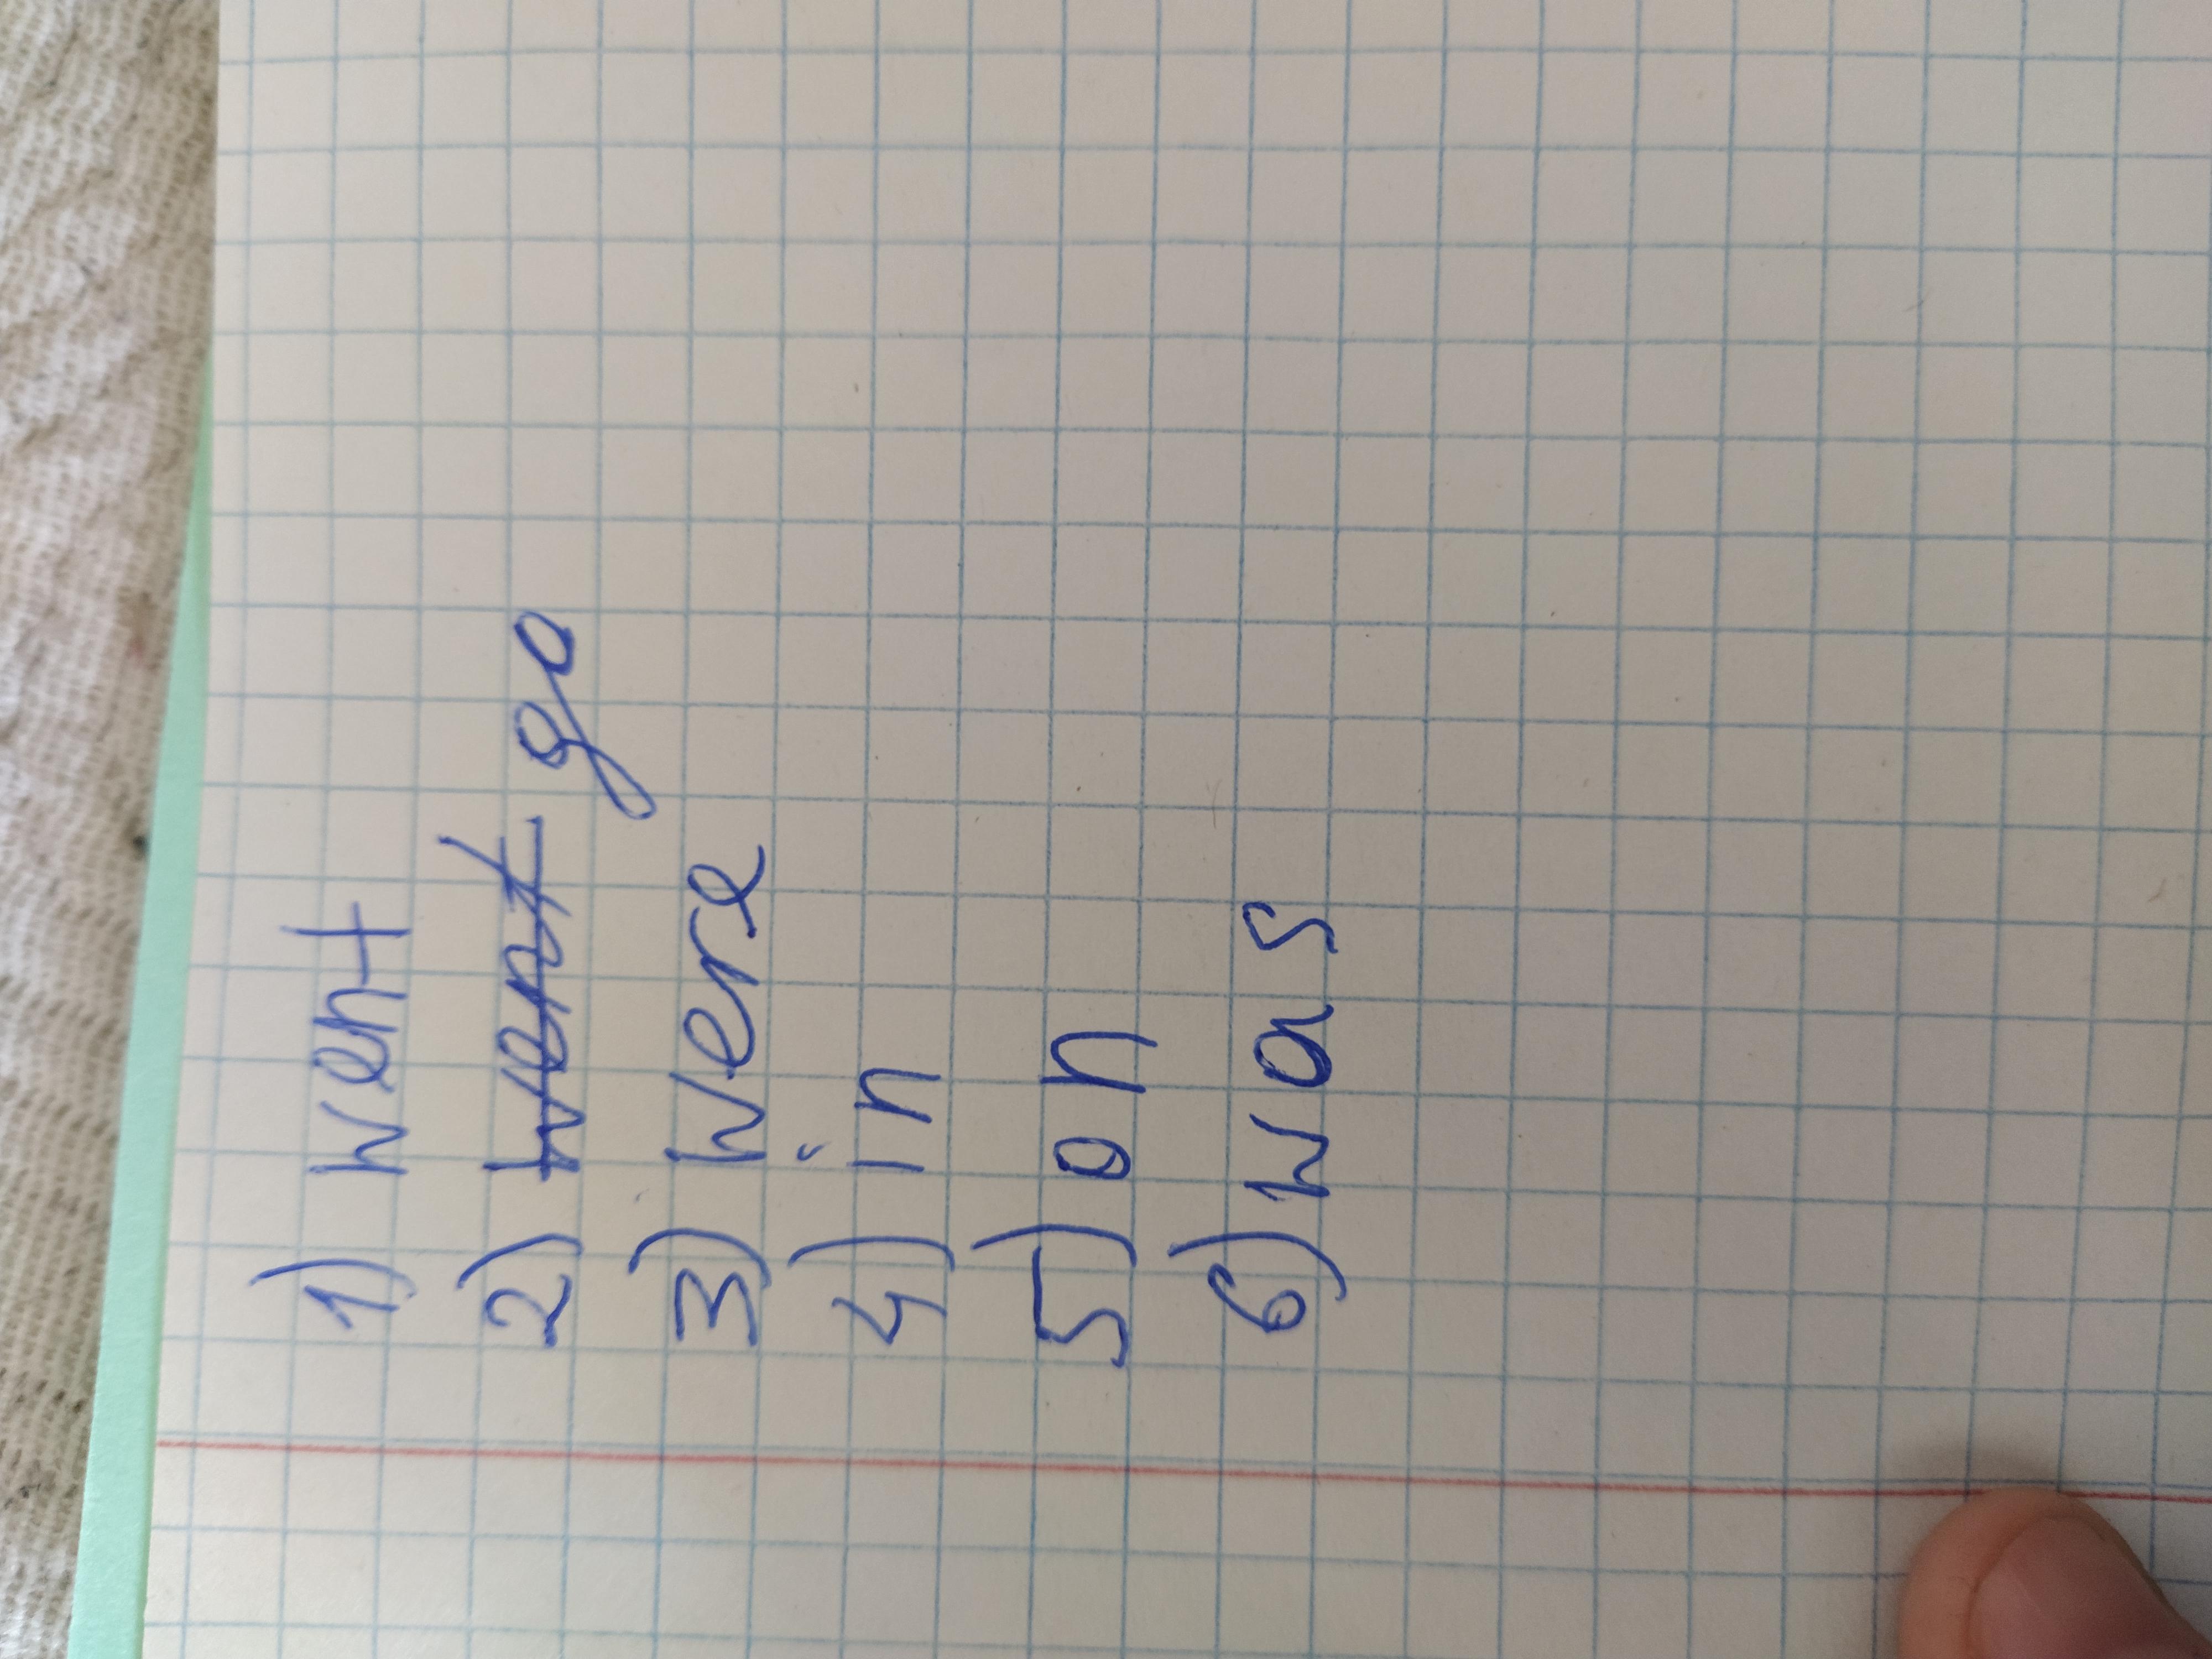 1) went
2) want go
3) were
4) in
5) on
6) was